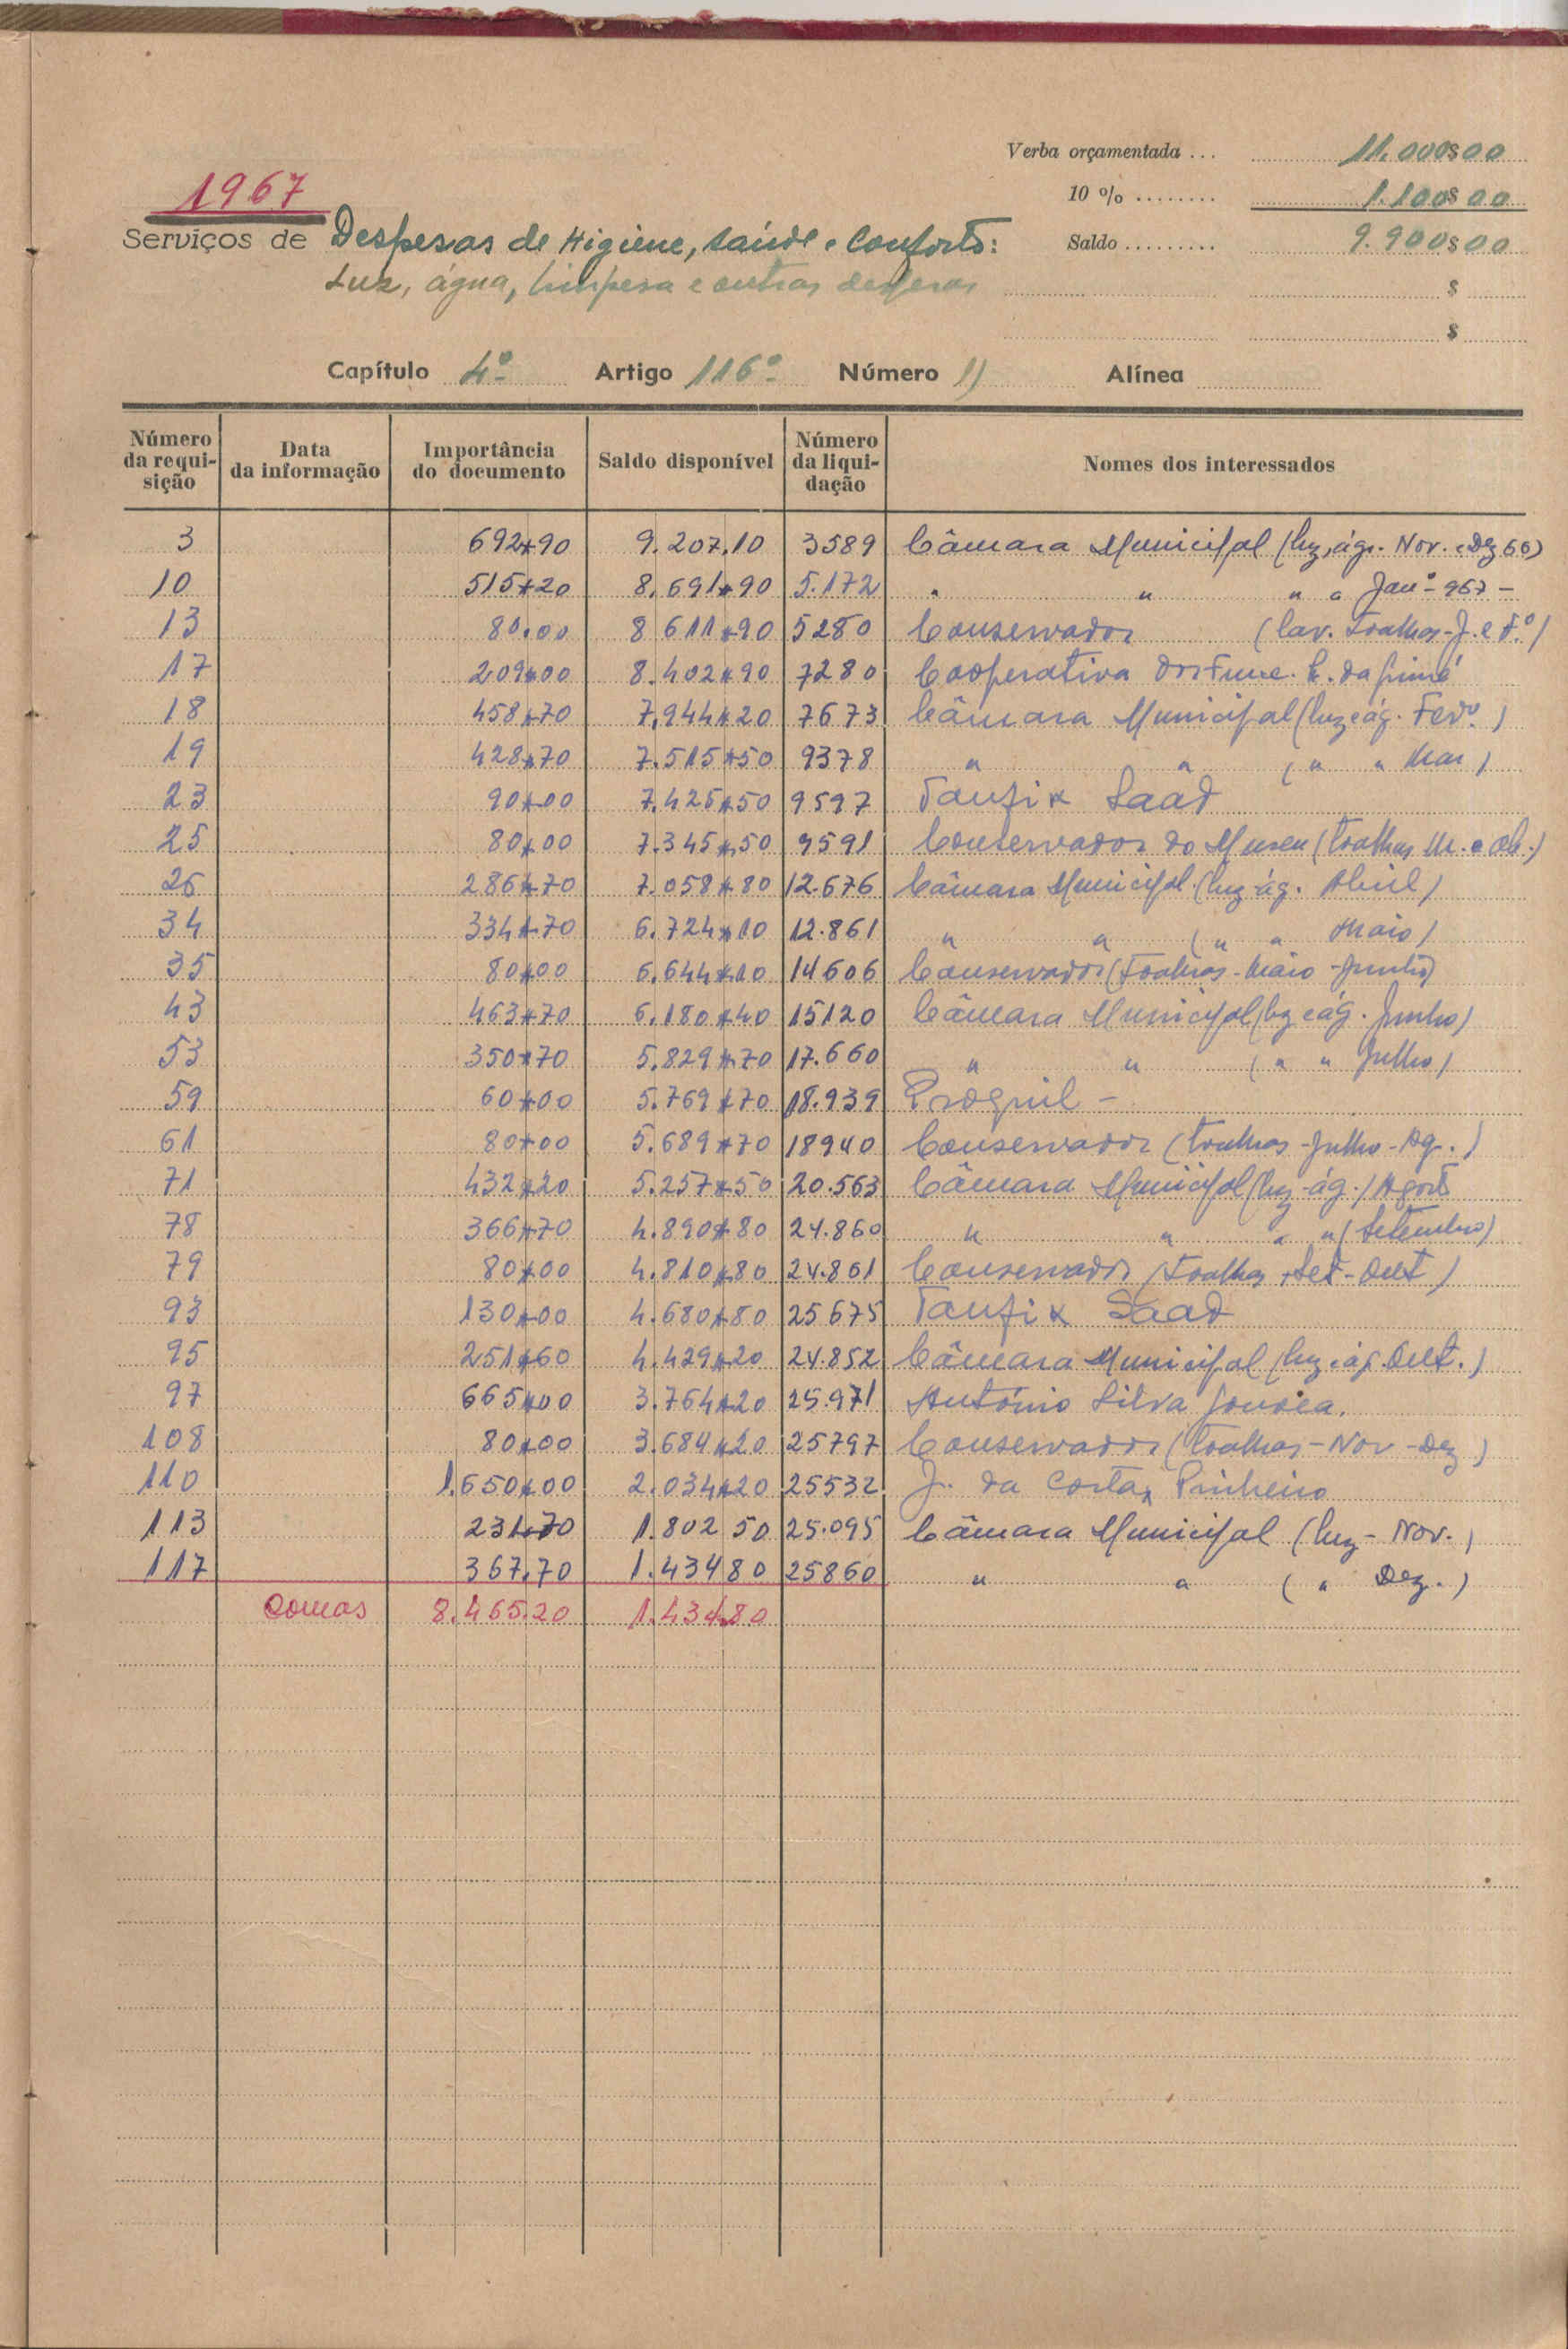 1967
Verba orçamentada ... 11.000$00
10 % ........ 1.100$00
Saldo ......... 9.900$00
$
$
Serviços de Despesas de Higiene, saúde e Conforto:
Luz, água, limpesa e outras despesas
Capítulo 4º Artigo 116º Número 1) Alínea
Número da requi-sição Data da informação Importância do documento Saldo disponível Número da liqui-dação Nomes dos interessados
3 692*90 9.207.10 3589 Câmara Municipal (luz, ág. Nov. e Dez 66)
10 515*20 8.691*90 5.172 " " " " Janº 967 -
13 80.00 8 611*90 5280 Conservador (lav. toalhas - J. e F.º)
17 209*00 8.402*90 7280 Cooperativa dos Func. da
18 458*70 7.944*20 7673 Câmara Municipal (luz e ág. Fevº.)
19 428*70 7.515*50 9378 " " ( " " Mar )
23 90*00 7.425*50 9597 Taufik Saad
25 80*00 7.345*50 9591 Conservador do Museu (toalhas M. e Ab.)
26 286*70 7.058*80 12.676 Câmara Municipal (luz ág. Abril)
34 334*70 6.724*10 12.861 " " ( " " Maio)
35 80*00 6.644*10 14606 Conservador (toalhas - Maio - Junho)
43 463*70 6.180*40 15120 Câmara Municipal (luz e ág. Junho)
53 350*70 5.829*70 17.660 " " ( " " Julho)
59 60*00 5.769*70 18.939 Proquil -
61 80*00 5.689*70 18940 Conservador (toalhas - Julho - Ag.)
71 432*20 5.257*50 20.563 Câmara Municipal (luz - ág.) Agosto
78 366*70 4.890*80 24.860 " " " " (Setembro)
79 80*00 4.810*80 24.861 Conservador (toalhas Set - Out)
93 130*00 4.680*80 25675 Taufik Saad
95 251*60 4.429*20 24.852 Câmara Municipal (luz e ág. Out.)
97 665*00 3.764*20 25.971 António Silva Gouveia.
108 80*00 3.684*20 25797 Conservador (toalhas - Nov - Dez)
110 1.650*00 2.034*20 25532 J. da Costa Pinheiro
113 231.70 1.802 50 25.095 Câmara Municipal (luz - Nov.)
117 367.70 1.434 80 25860 " " ( " Dez.)
Somas 8.465.20 1.434.80